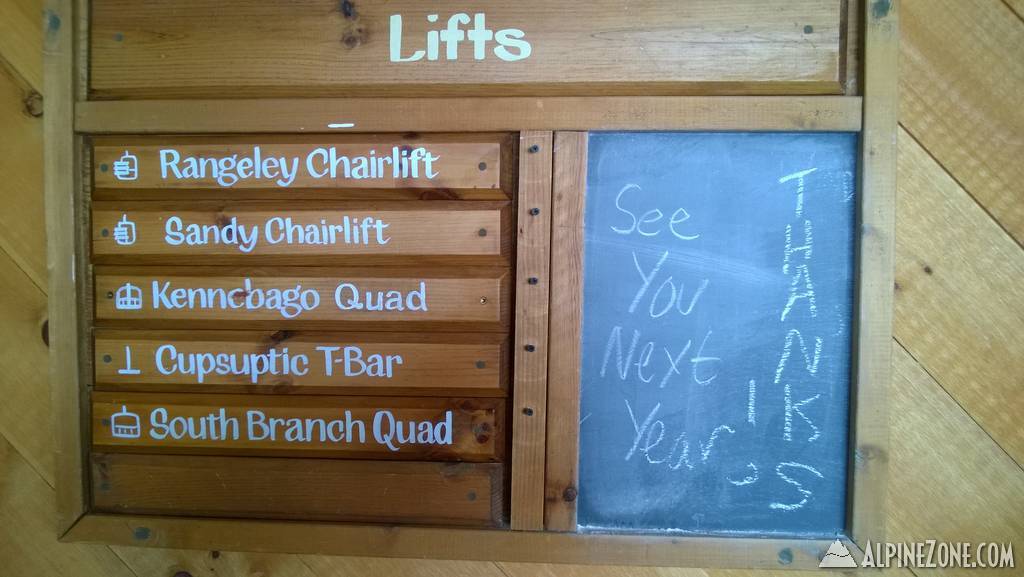 Lifts
Rangeley Chairlift
Sandy Chairlift
Kennebago Quad
Cupsuptic T-Bar
South Branch Quad
See
You
Next
Year,
!
THANKS
ALPINEZONE.COM